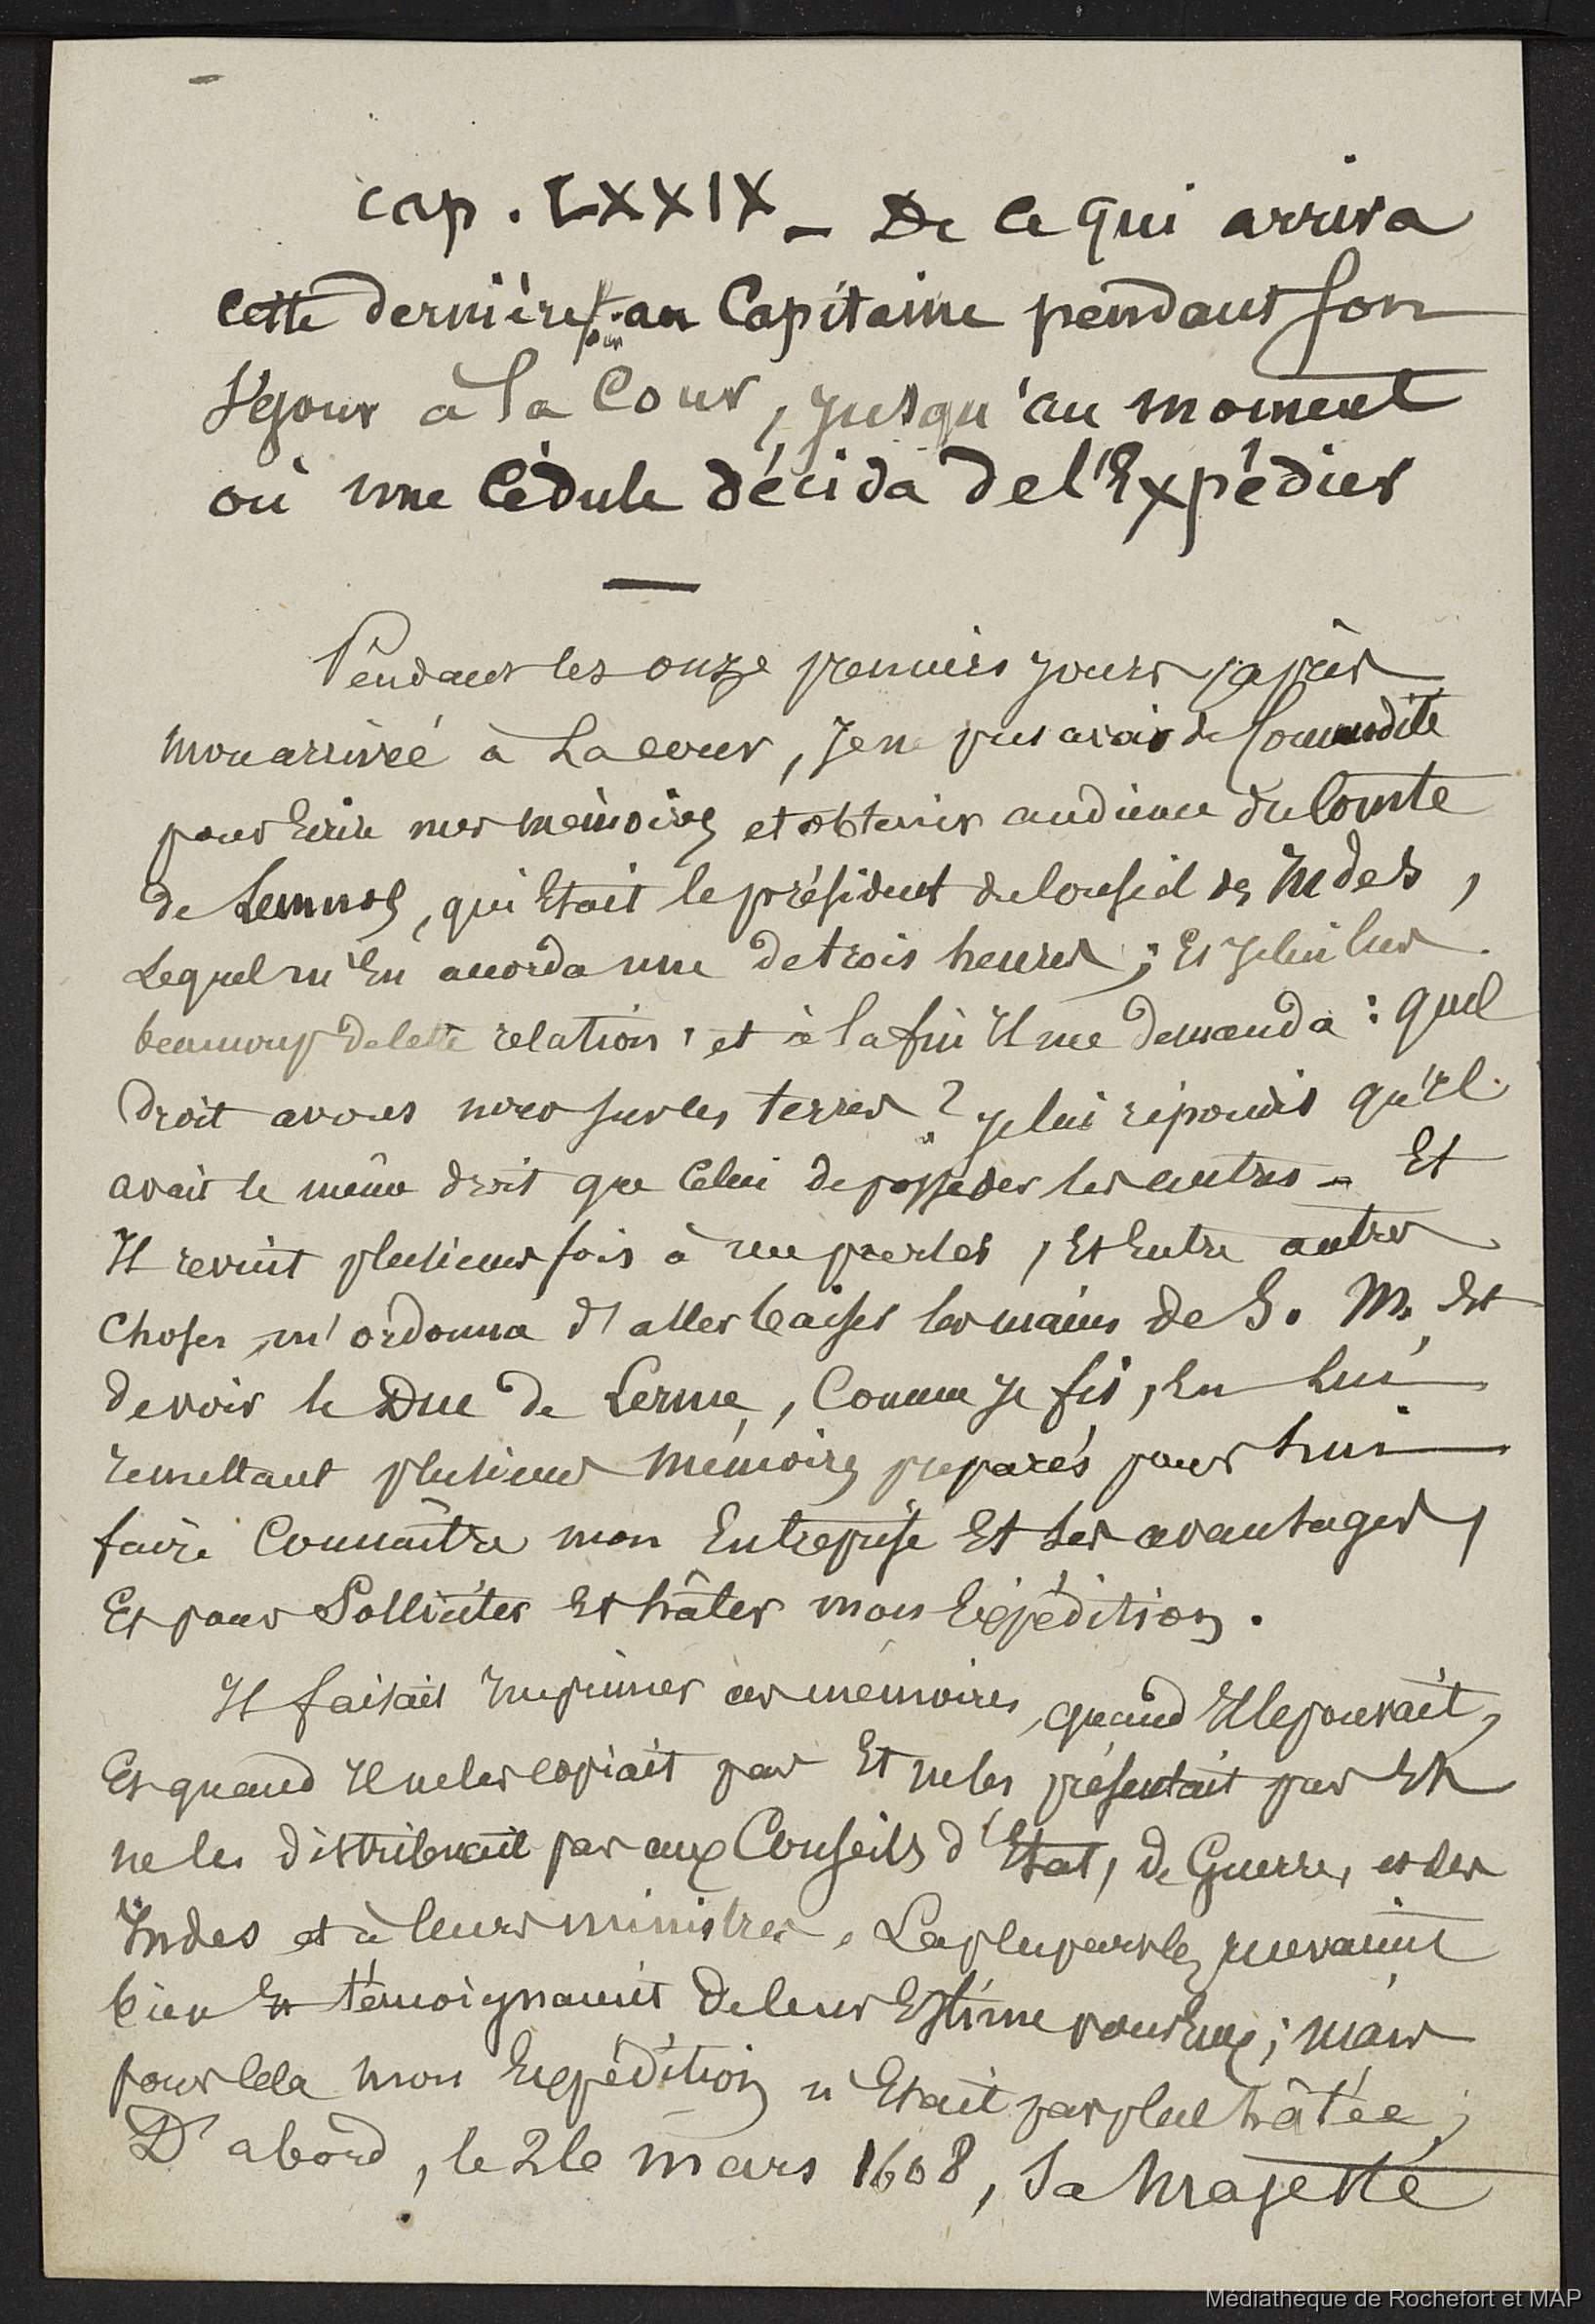 Cap. LXXIX _ De ce qui arriva
cette dernière fois au Capitaine pendant son
séjour à la Cour, jusqu'au moment
où une Cédule décida de l'Expédier
Pendant les onze premiers jours après
mon arrivée à la cour, je ne pus avoir de Commodité
pour Ecrire mes mémoires et obtenir audience du Comte
de Lemnos, qui Etait le président du Conseil des Indes,
Lequel m'En accorda une de trois heures; Et je lui lus
beaucoup de cette relation, et à la fin Il me demanda : quel
droit avons nous sur ces terres ? je lui répondis qu'il
avait le même droit que Celui de posséder les autres _ Et
Il revint plusieurs fois à me parler, Et Entre autres
Choses, m'ordonna d'aller baiser les mains de S. M. Et
de voir le Duc de Lerme, Comme je fis, En lui
remettant plusieurs Mémoires préparés pour lui
faire Connaître mon Entreprise Et ses avantages,
Et pour Solliciter Et hâter mon Expédition.
Il faisait Imprimer ces mémoires, quand Il le pouvait,
Et quand Il ne les copiait pas Et ne les présentait pas Et
ne les distribuait pas aux Conseils d'Etat, de Guerre, et des
Indes et à leurs ministres. La plupart les recevaient
bien Et témoignaient de leur Estime pour Eux; mais
pour Cela mon Expédition n'Etait pas plus hâtée;
D'abord, le 26 mars 1608, Sa Majesté
Médiathèque de Rochefort et MAP